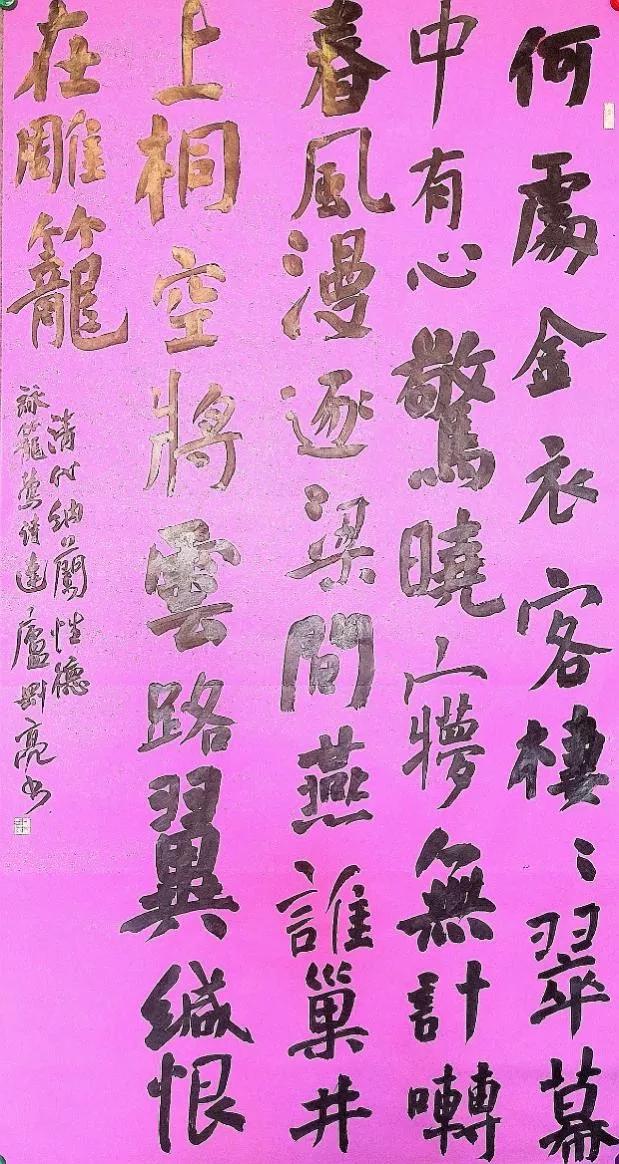 何處金衣客棲〻翠幕
中有心驚曉㝱無計囀
春風漫逐梁間燕誰巢井
上桐空將雲路翼緘恨
在雕籠
清代納蘭性德
詠籠鶯 達廬 亮书